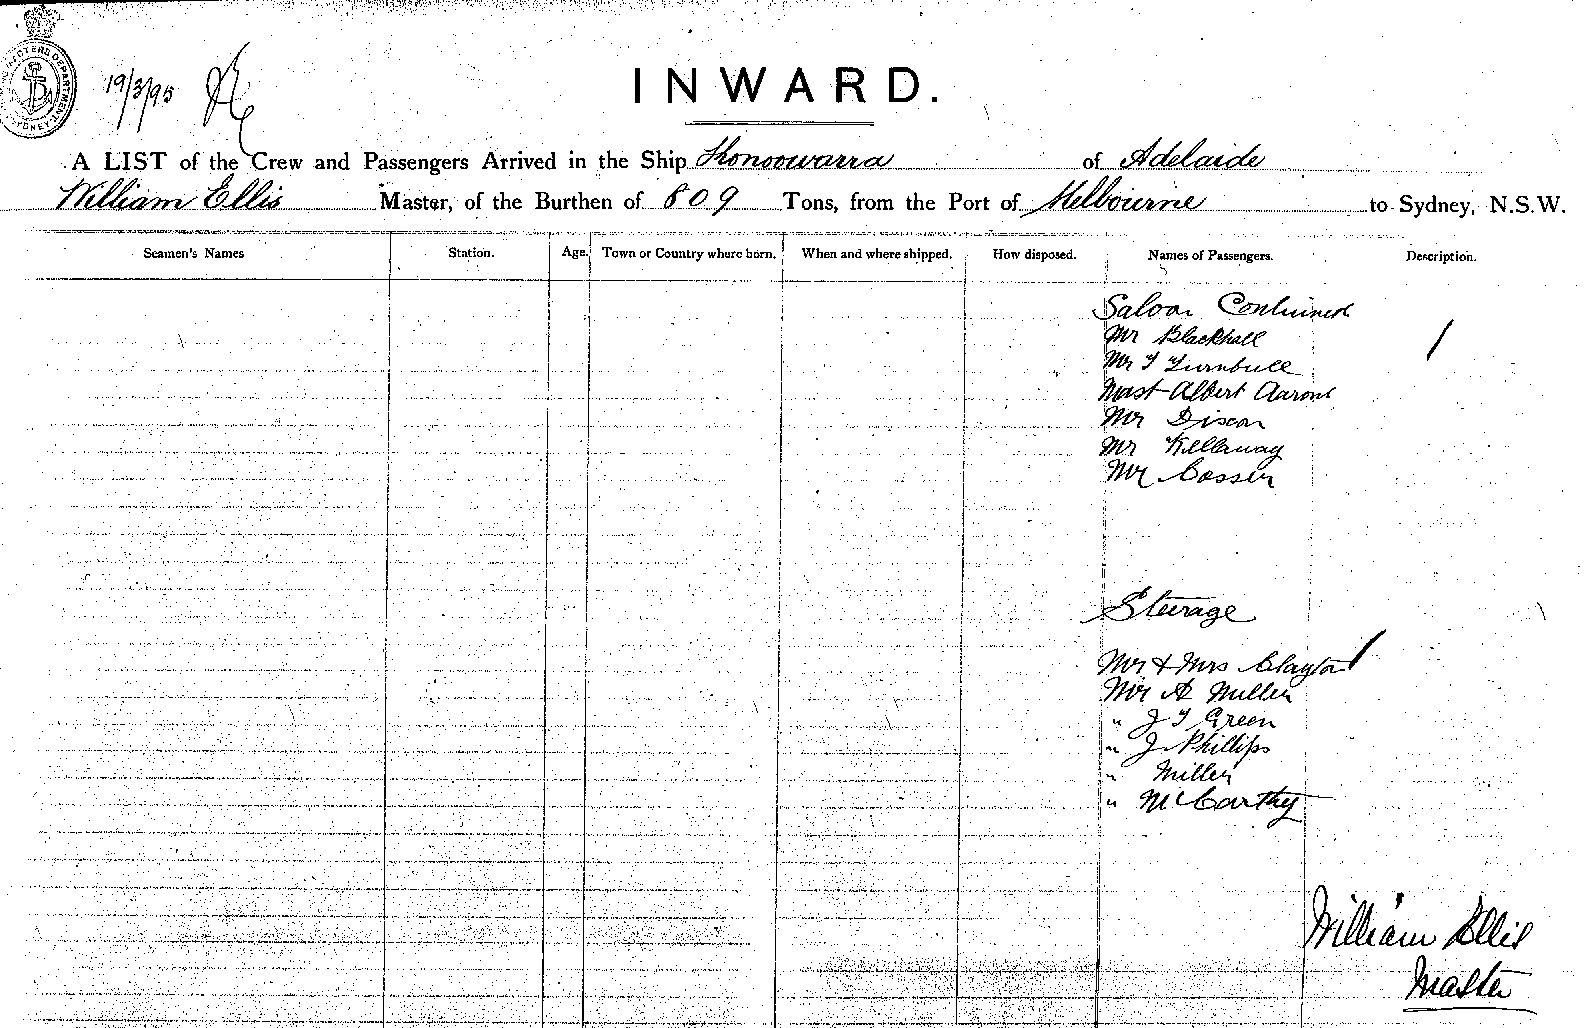 19/3/95
INWARD.
A LIST of the Crew and Passengers Arrived in the Ship Konoowarra of Adelaide
William Ellis Master, of the Burthen of 809 Tons, from the Port of Melbourne to Sydney, N.S.W.
Seamen's Names Station. Age. Town or Country where born. When and where shipped. How disposed. Names of Passengers. Description.
Saloon Continued
Mr Blackhall
Mr T Turnbull
Mast Albert Aarons
Mr Discon
Mr Kellaway
Mr Cosser
Steerage
Mr & Mrs Clayton
Mr A Miller
" J T Green
" J Phillips
" Miller
" McCarthy
William Ellis
Master